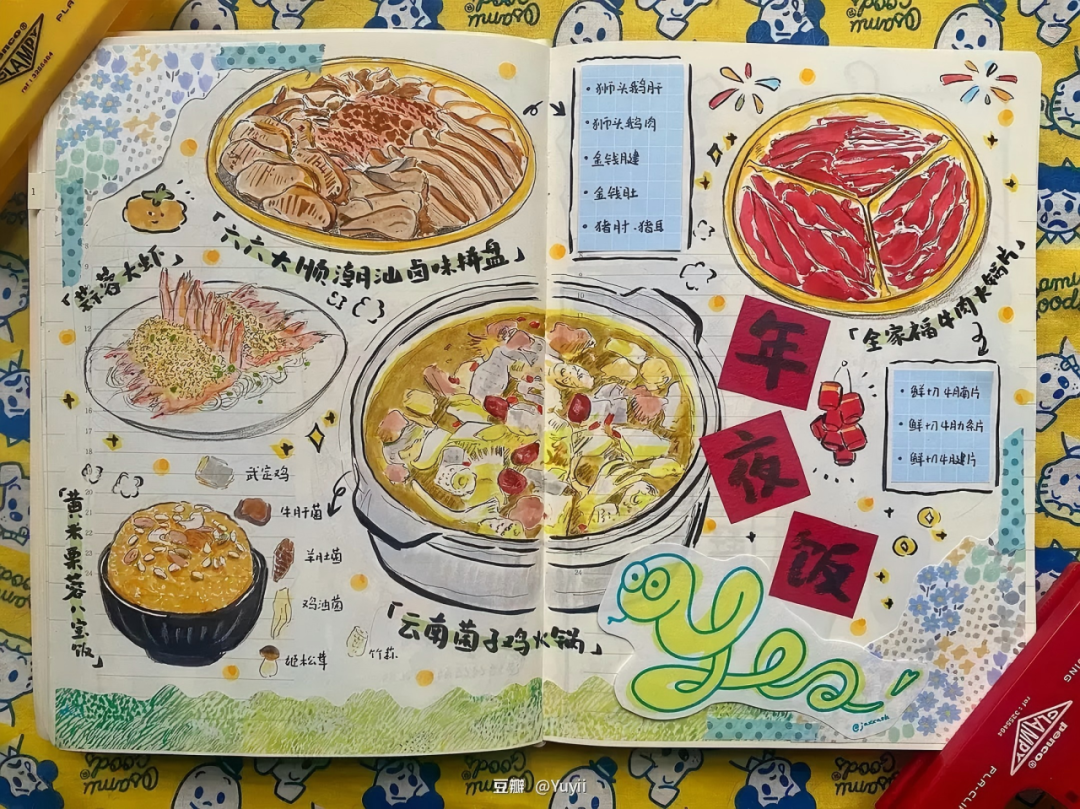 「六六大顺潮汕卤味拼盘」
・狮头鹅肝
・狮头鹅肉
・金钱腱
・金钱肚
・猪肘.猪耳
「全家福牛肉大锅片」
・鲜切牛腩片
・鲜切牛肋条片
・鲜切牛腱片
「蒜蓉大虾」
年
夜
饭
武定鸡
牛肝菌
羊肚菌
鸡油菌
姬松茸
竹荪
「黄米栗蓉八宝饭」
「云南菌子鸡火锅」
yes
@jaxrank
penco
CLAMPY
ref:3255464
PLA
penco
CLAMPY
ref:3255464
PLA-CL
Osamu
Goods
豆瓣 @Yuyii